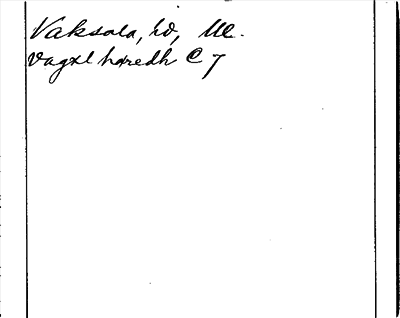 Vaksala, hd, Ul.
Vagxl hæredh C 7